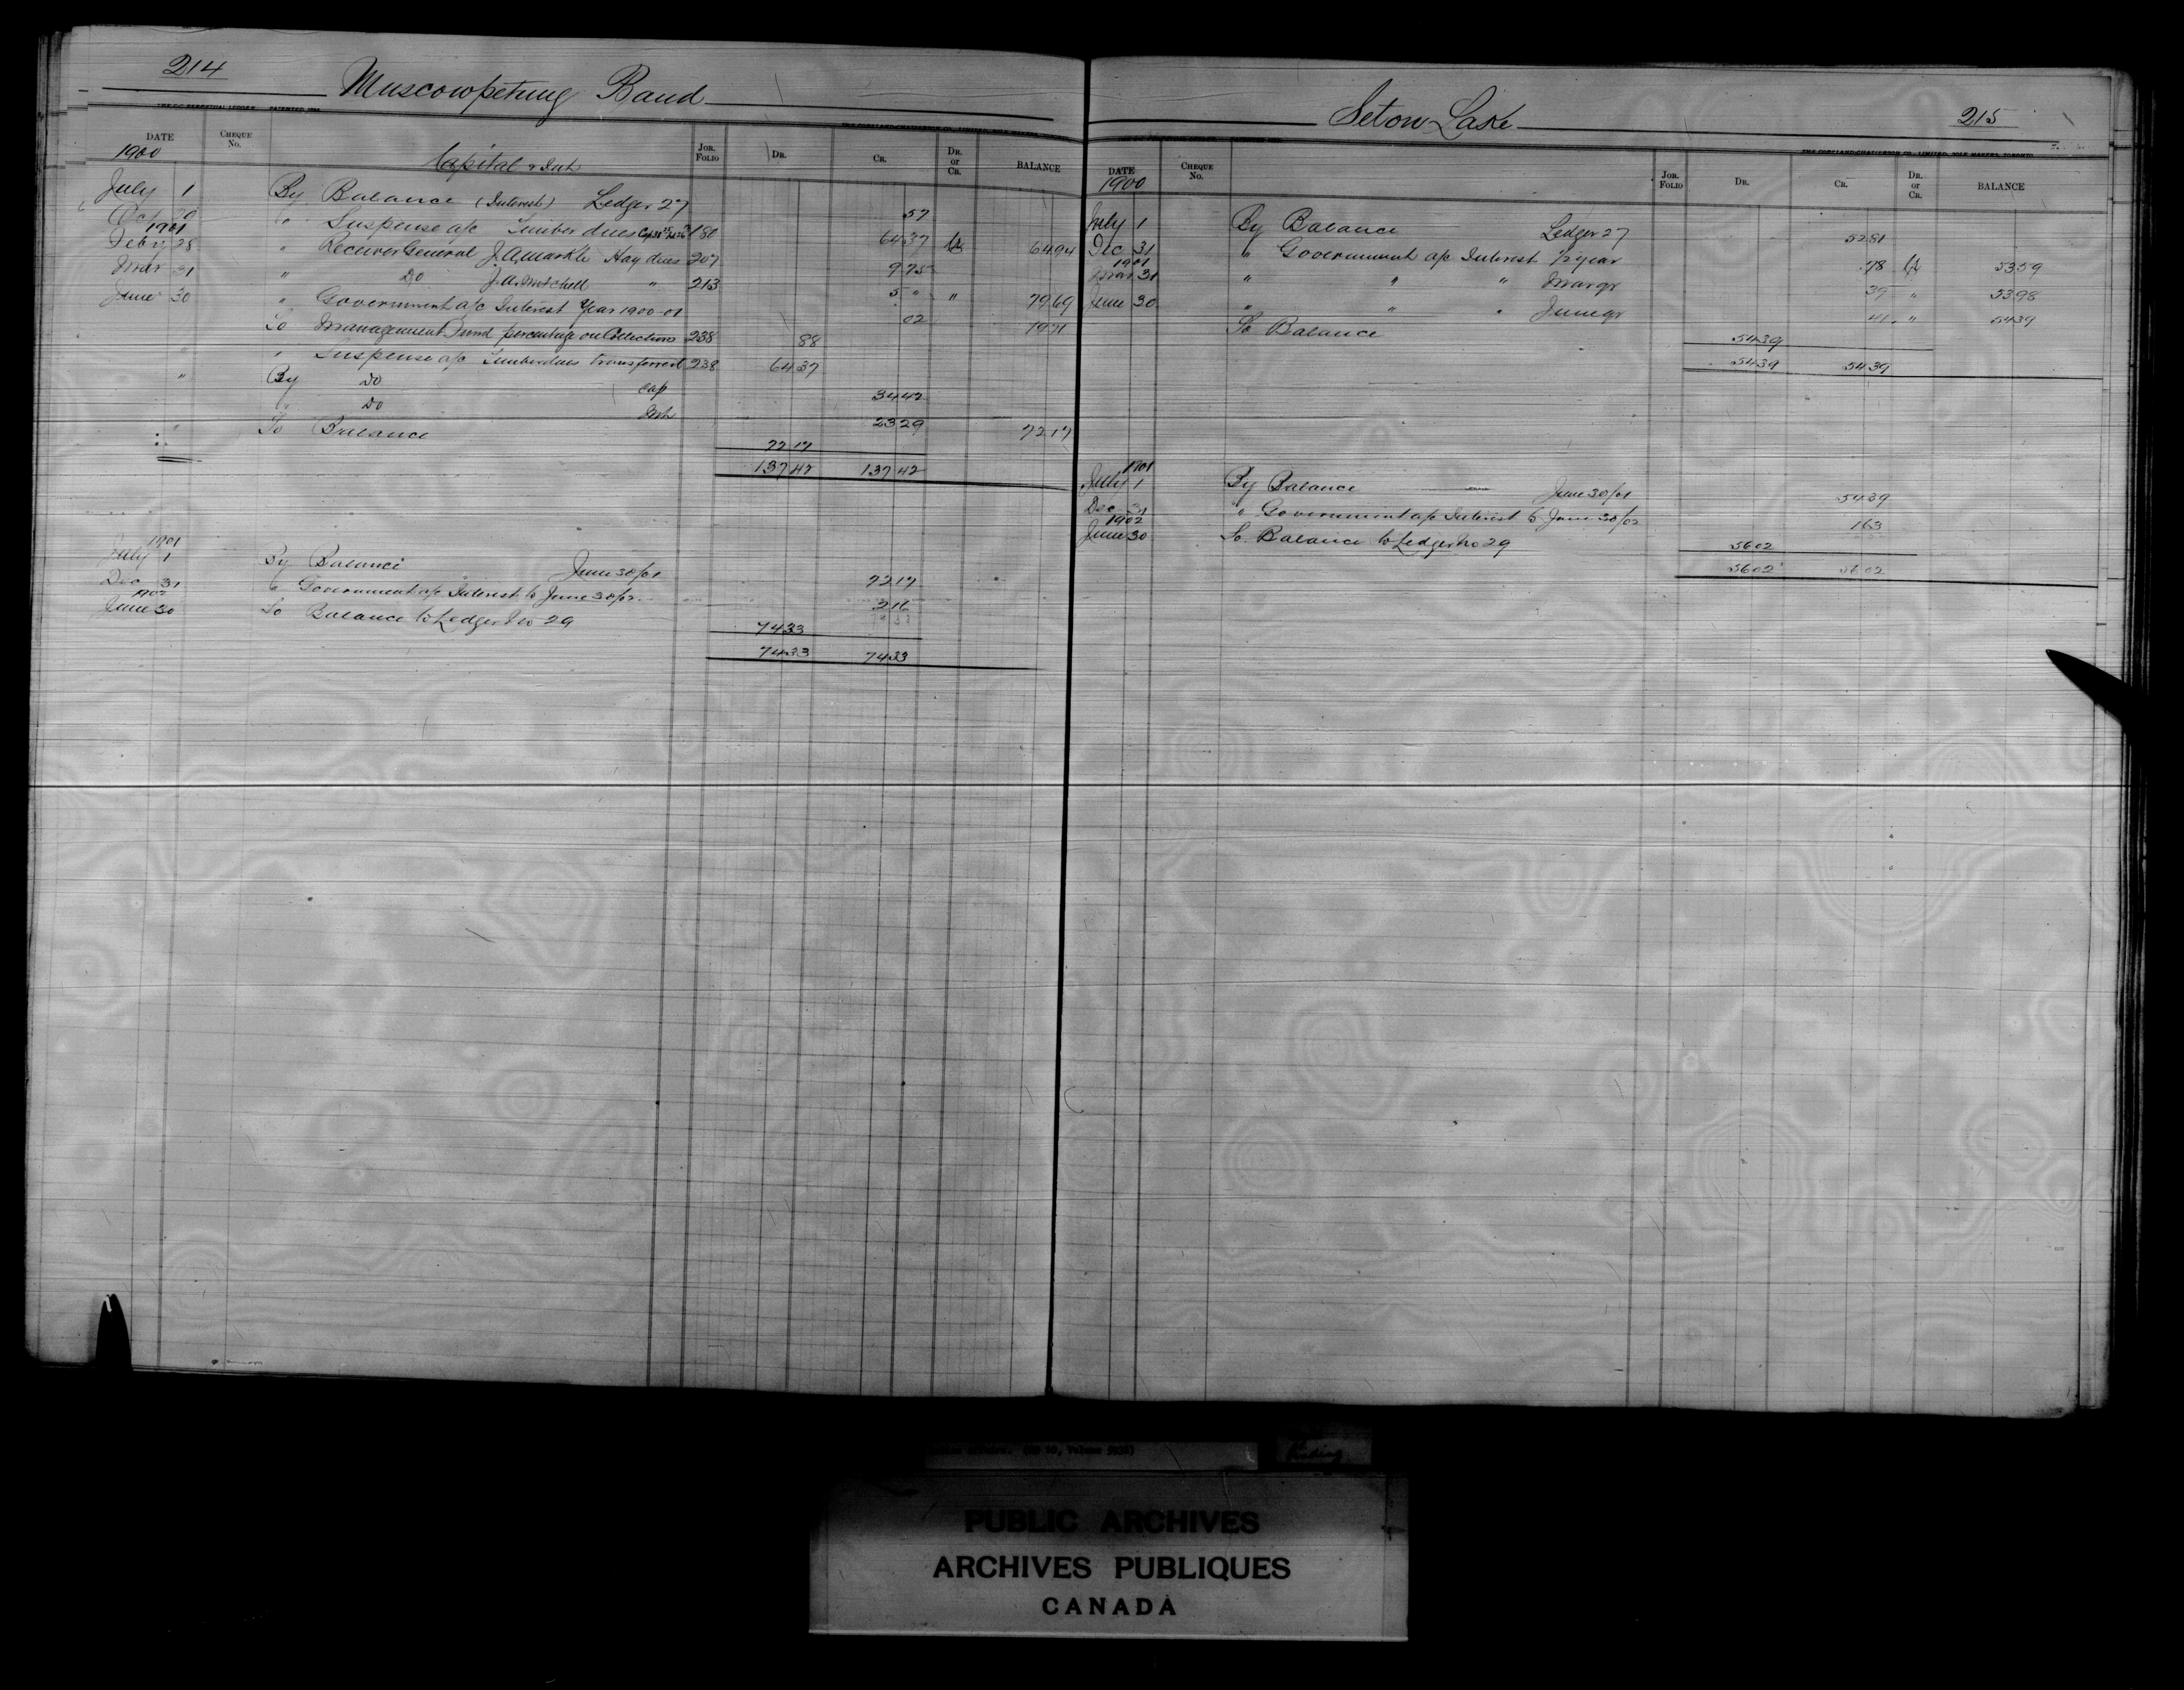 214
Muscowpetung Band
DATE CHEQUE No. JOR. FOLIO DR. CR. DR. or CR. BALANCE
1900 Capital & Int
July 1 By Balance (Interest) Ledger 27 57
Oct " Suspense a/c Timber dues 180 64 37 Cr 64 94
1901
Feby 28 " Receiver General J.A. Markle Hay dues 207 9 75
Mar 31 " Do J.A. Mitchell " 213 5 " " 79 69
June 30 " Government a/c Interest Year 1900-01 02 79 71
To Management Fund percentage on Collections 238 88
" " Suspense a/c Timber dues transferred 238 64 37
" By Do Cap 34 42
" Do Int 23 29 72 17
" To Balance 72 17
137 42 137 42
1901
July 1 By Balance June 30/01 72 17
Dec 31 " Government a/c Interest to June 30/02 2 16
1902
June 30 To Balance to Ledger No 29 74 33
74 33 74 33
Seton Lake
215
THE COPELAND-CHATTERSON CO., LIMITED, SOLE MAKERS, TORONTO
DATE CHEQUE No. JOR. FOLIO DR. CR. DR. or CR. BALANCE
1900
July 1 By Balance Ledger 27 52 81
Dec 31 " Government a/c Interest 1/2 year 78 Cr 53 59
1901
Mar 31 " " " Mar qr 39 " 53 98
June 30 " " " June qr 41 " 54 39
To Balance 54 39
54 39 54 39
1901
July 1 By Balance June 30/01 54 39
Dec 31 " Government a/c Interest to June 30/02 1 63
1902
June 30 To Balance to Ledger No 29 56 02
56 02 56 02
PUBLIC ARCHIVES
ARCHIVES PUBLIQUES
CANADA